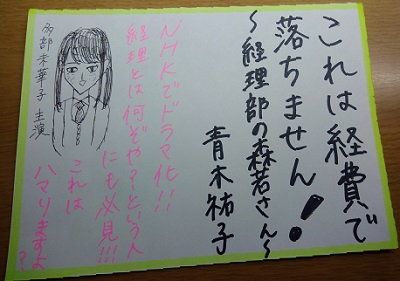 これは経費で
落ちません!
～経理部の森若さん～
青木祐子
NHKでドラマ化!!
経理とは何ぞや?という人
にも必見!!!
これは
ハマりますよ?
多部未華子 主演